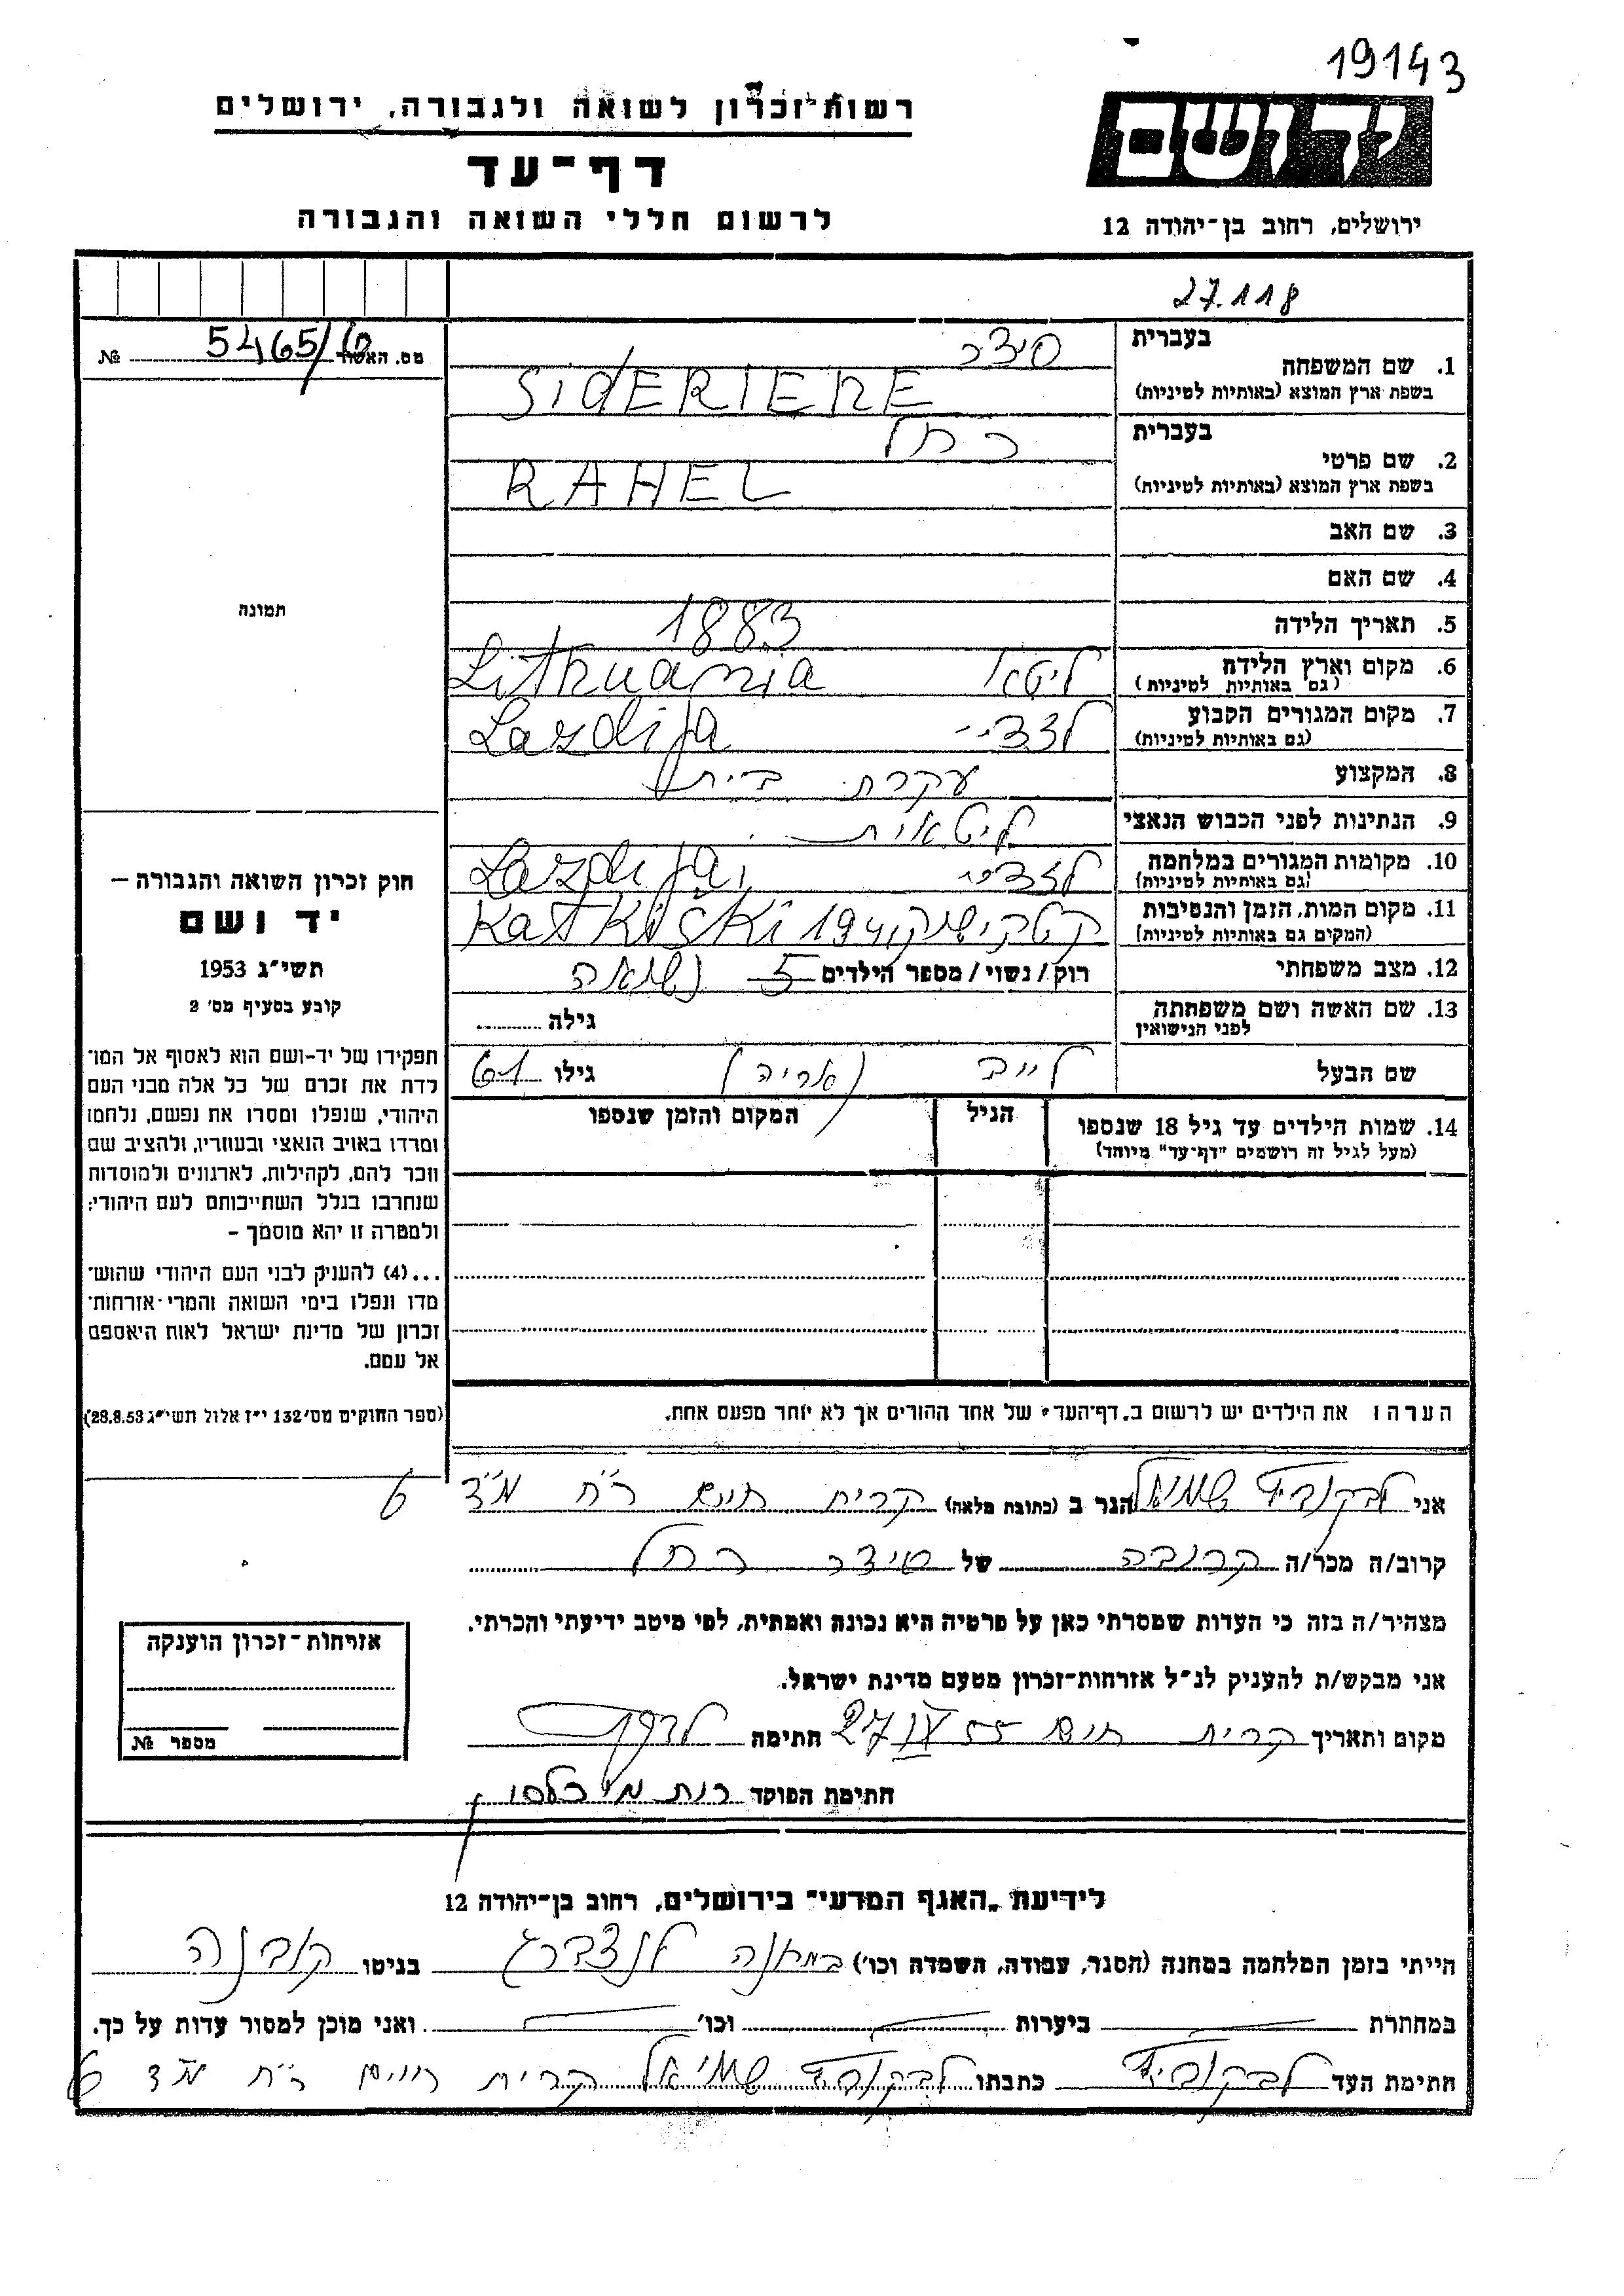 19143
רשות־זכרון לשואה ולגבורה, ירושלים
ידושם
דף־עד
לרשום חללי השואה והגבורה
ירושלים, רחוב בן־יהודה 12
27.118
מס. האשור 5465/6 №
1. שם המשפחה בעברית סידר
בשפת ארץ המוצא (באותיות לטיניות) SIDERIENE
2. שם פרטי בעברית רחל
בשפת ארץ המוצא (באותיות לטיניות) RAHEL
3. שם האב
4. שם האם
תמונה
5. תאריך הלידה 1883
6. מקום וארץ הלידה ליטא Lithuania
(גם באותיות לטיניות)
7. מקום המגורים הקבוע לזדיי Lazdija
(גם באותיות לטיניות)
8. המקצוע עקרת בית
9. הנתינות לפני הכבוש הנאצי ליטאית
10. מקומות המגורים במלחמה לזדיי Lazdija,
(גם באותיות לטיניות)
11. מקום המות, הזמן והנסיבות 1941 Katkiski
(המקום גם באותיות לטיניות)
12. מצב משפחתי רוק/נשוי/מספר הילדים 5 נשואה
13. שם האשה ושם משפחתה לפני הנישואין גילה
שם הבעל לייב (אריה) גילו 61
14. שמות הילדים עד גיל 18 שנספו הגיל המקום והזמן שנספו
(מעל לגיל זה רושמים "דף־עד" מיוחד)
הערה: את הילדים יש לרשום ב„דף־העד" של אחד ההורים אך לא יותר מפעם אחת.
חוק זכרון השואה והגבורה —
יד ושם
תשי"ג 1953
קובע בסעיף מס' 2
תפקידו של יד-ושם הוא לאסוף אל המו־
לדת את זכרם של כל אלה מבני העם
היהודי, שנפלו ומסרו את נפשם, נלחמו
ומרדו באויב הנאצי ובעוזריו, ולהציב שם
וזכר להם, לקהילות, לארגונים ולמוסדות
שנחרבו בגלל השתייכותם לעם היהודי;
ולמטרה זו יהא מוסמך —
...(4) להעניק לבני העם היהודי שהוש־
מדו ונפלו בימי השואה והמרי אזרחות־
זכרון של מדינת ישראל לאות היאספם
אל עמם.
(ספר החוקים מס' 132 י"ז אלול תשי"ג 28.8.53)
אני לבקוביץ שמואל הגר ב (כתובת מלאה) קרית חיים ר"ח מ"ד 6
קרוב/ה מכר/ה קרובה של סידר רחל
מצהיר/ה בזה כי העדות שמסרתי כאן על פרטיה היא נכונה ואמתית, לפי מיטב ידיעתי והכרתי.
אני מבקש/ת להעניק לנ"ל אזרחות־זכרון מטעם מדינת ישראל.
מקום ותאריך קרית חיים 27 IV 55 חתימה
חתימת הפוקד רות
אזרחות־זכרון הוענקה
מספר №
לידיעת „האגף המדעי" בירושלים, רחוב בן־יהודה 12
הייתי בזמן המלחמה במחנה (הסגר, עבודה, השמדה וכו') במחנה לנצברג בגיטו קובנה
במחתרת ביערות וכו' ואני מוכן למסור עדות על כך.
חתימת העד לבקוביץ כתבתו לבקוביץ שמואל קרית חיים ר"ח מ"ד 6